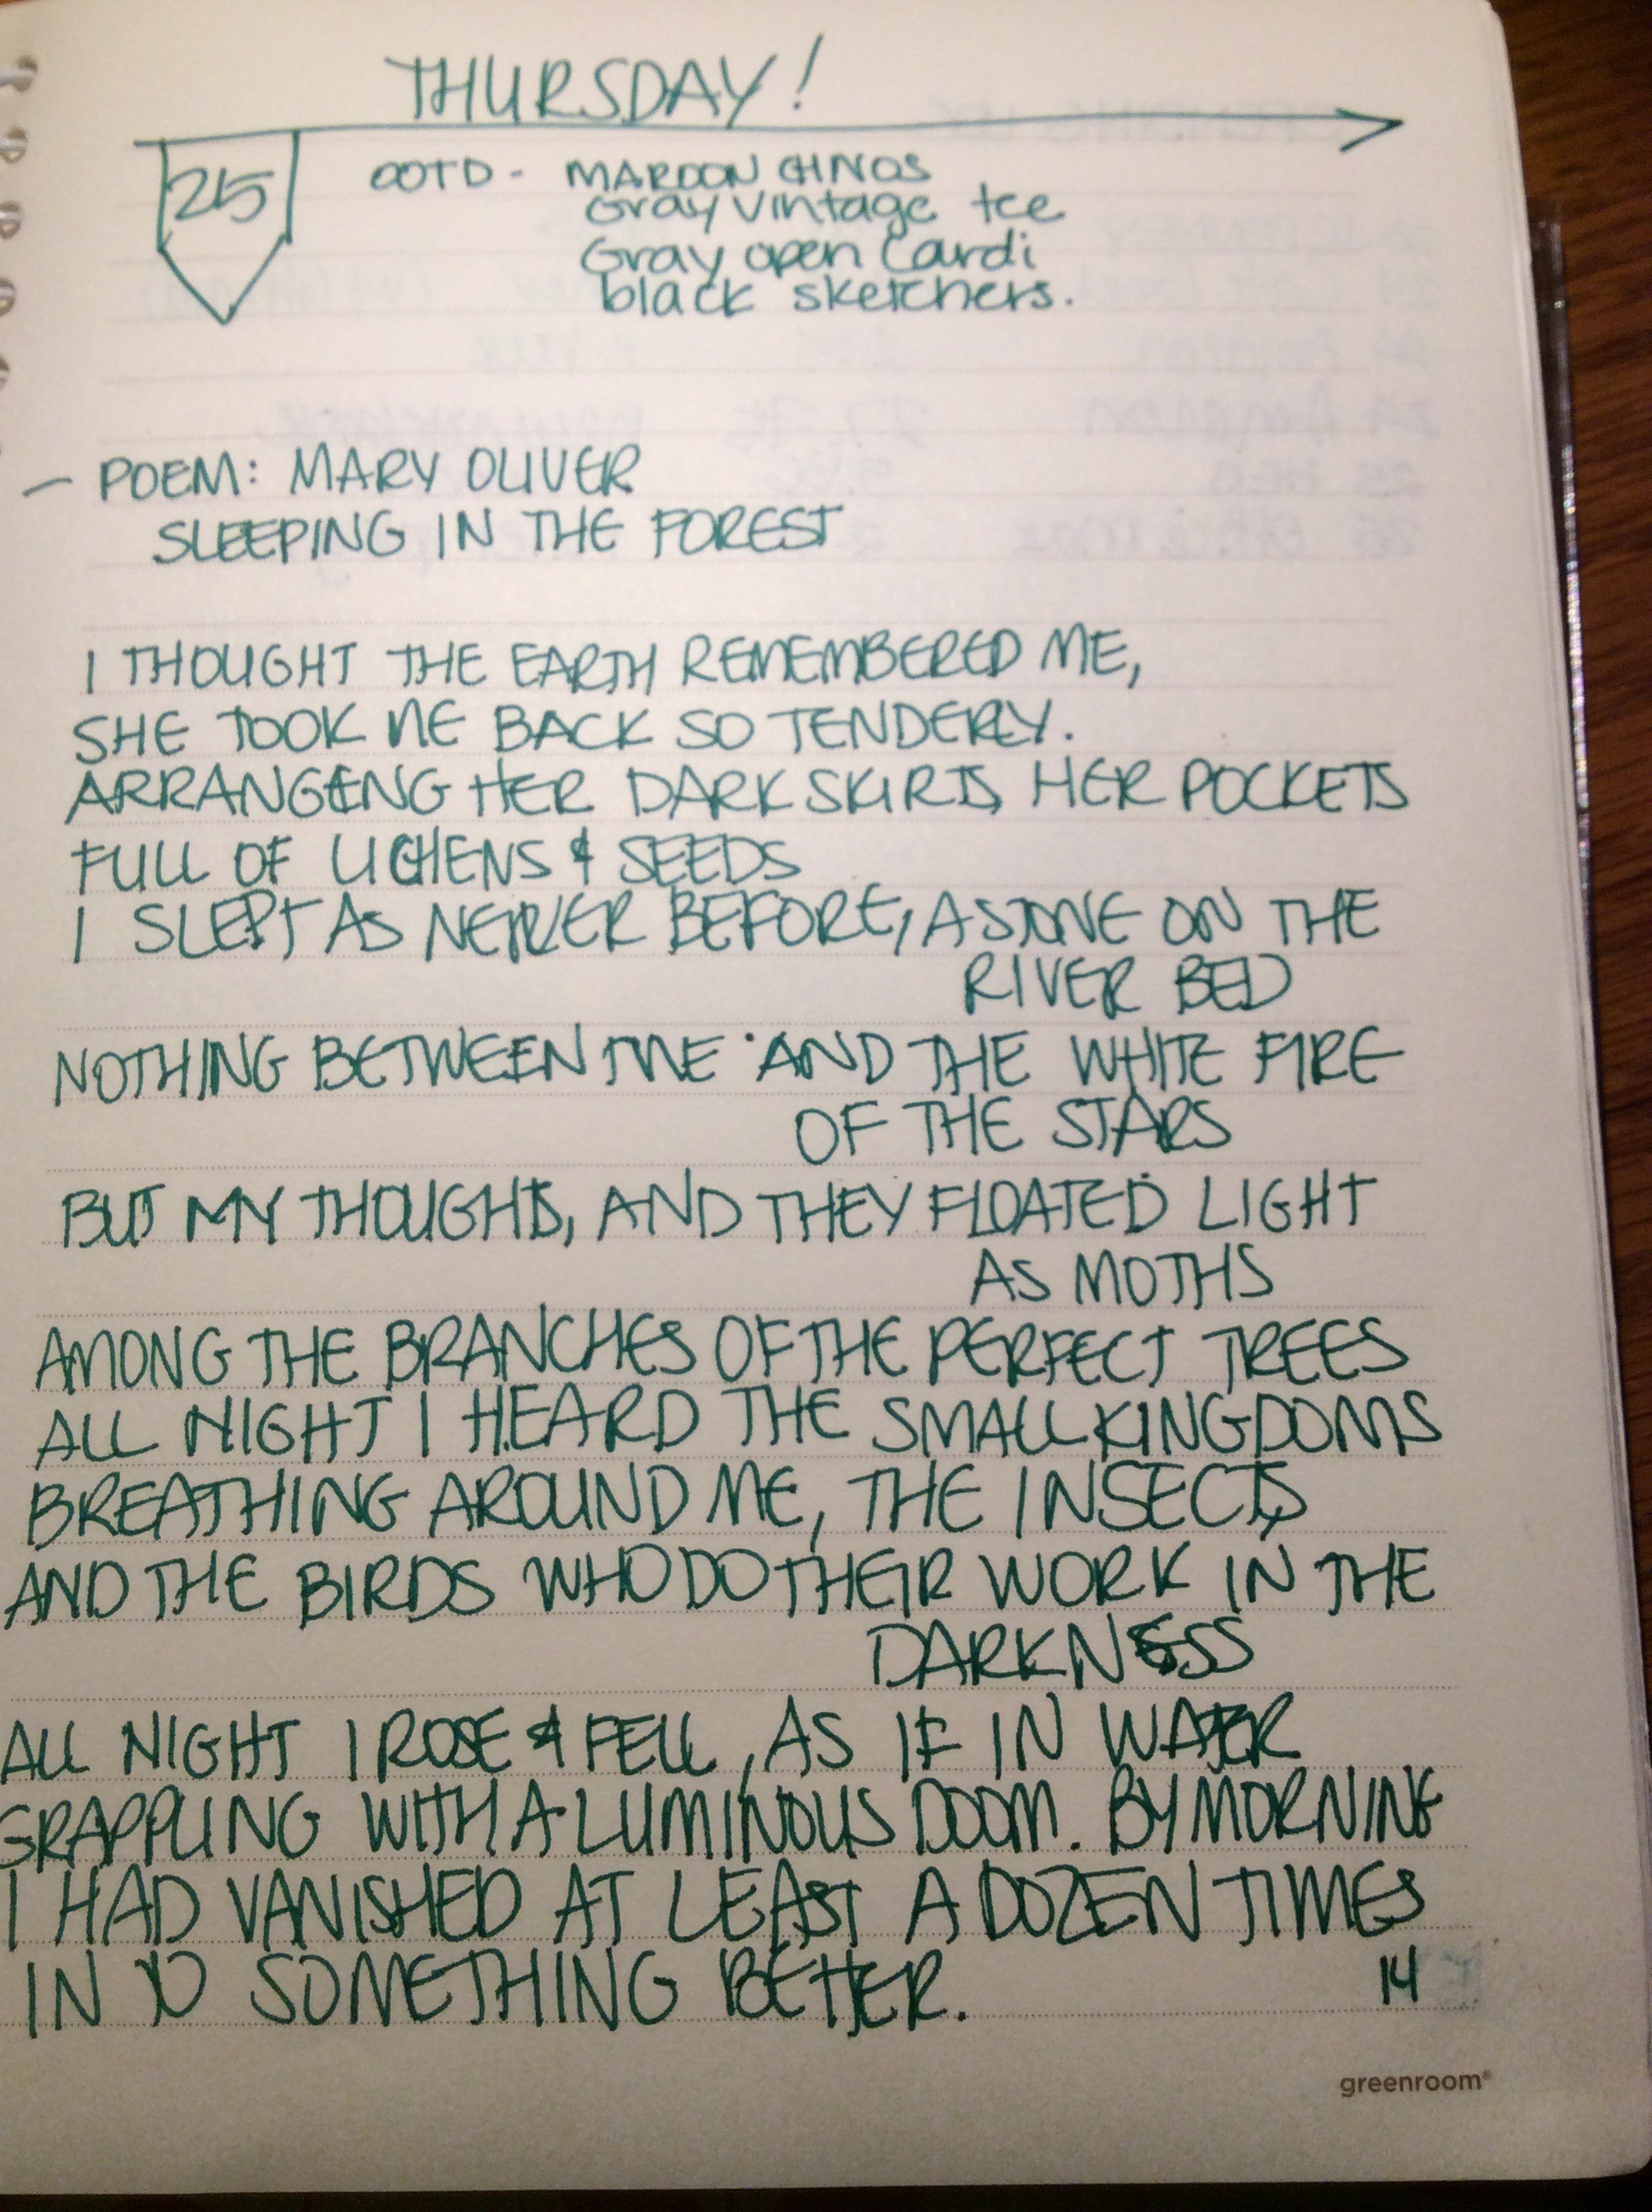 THURSDAY!
25
OOTD - MAROON CHINOS
Gray vintage tee
Gray open Cardi
black sketchers.
— POEM: MARY OLIVER
SLEEPING IN THE FOREST
I THOUGHT THE EARTH REMEMBERED ME,
SHE TOOK ME BACK SO TENDERLY.
ARRANGING HER DARK SKIRTS, HER POCKETS
FULL OF LICHENS & SEEDS
I SLEPT AS NEVER BEFORE, A STONE ON THE
RIVER BED
NOTHING BETWEEN ME AND THE WHITE FIRE
OF THE STARS
BUT MY THOUGHTS, AND THEY FLOATED LIGHT
AS MOTHS
AMONG THE BRANCHES OF THE PERFECT TREES
ALL NIGHT I HEARD THE SMALL KINGDOMS
BREATHING AROUND ME, THE INSECTS,
AND THE BIRDS WHO DO THEIR WORK IN THE
DARKNESS
ALL NIGHT I ROSE & FELL, AS IF IN WATER
GRAPPLING WITH A LUMINOUS DOOM. BY MORNING
I HAD VANISHED AT LEAST A DOZEN TIMES
IN TO SOMETHING BETTER.
14
greenroom®